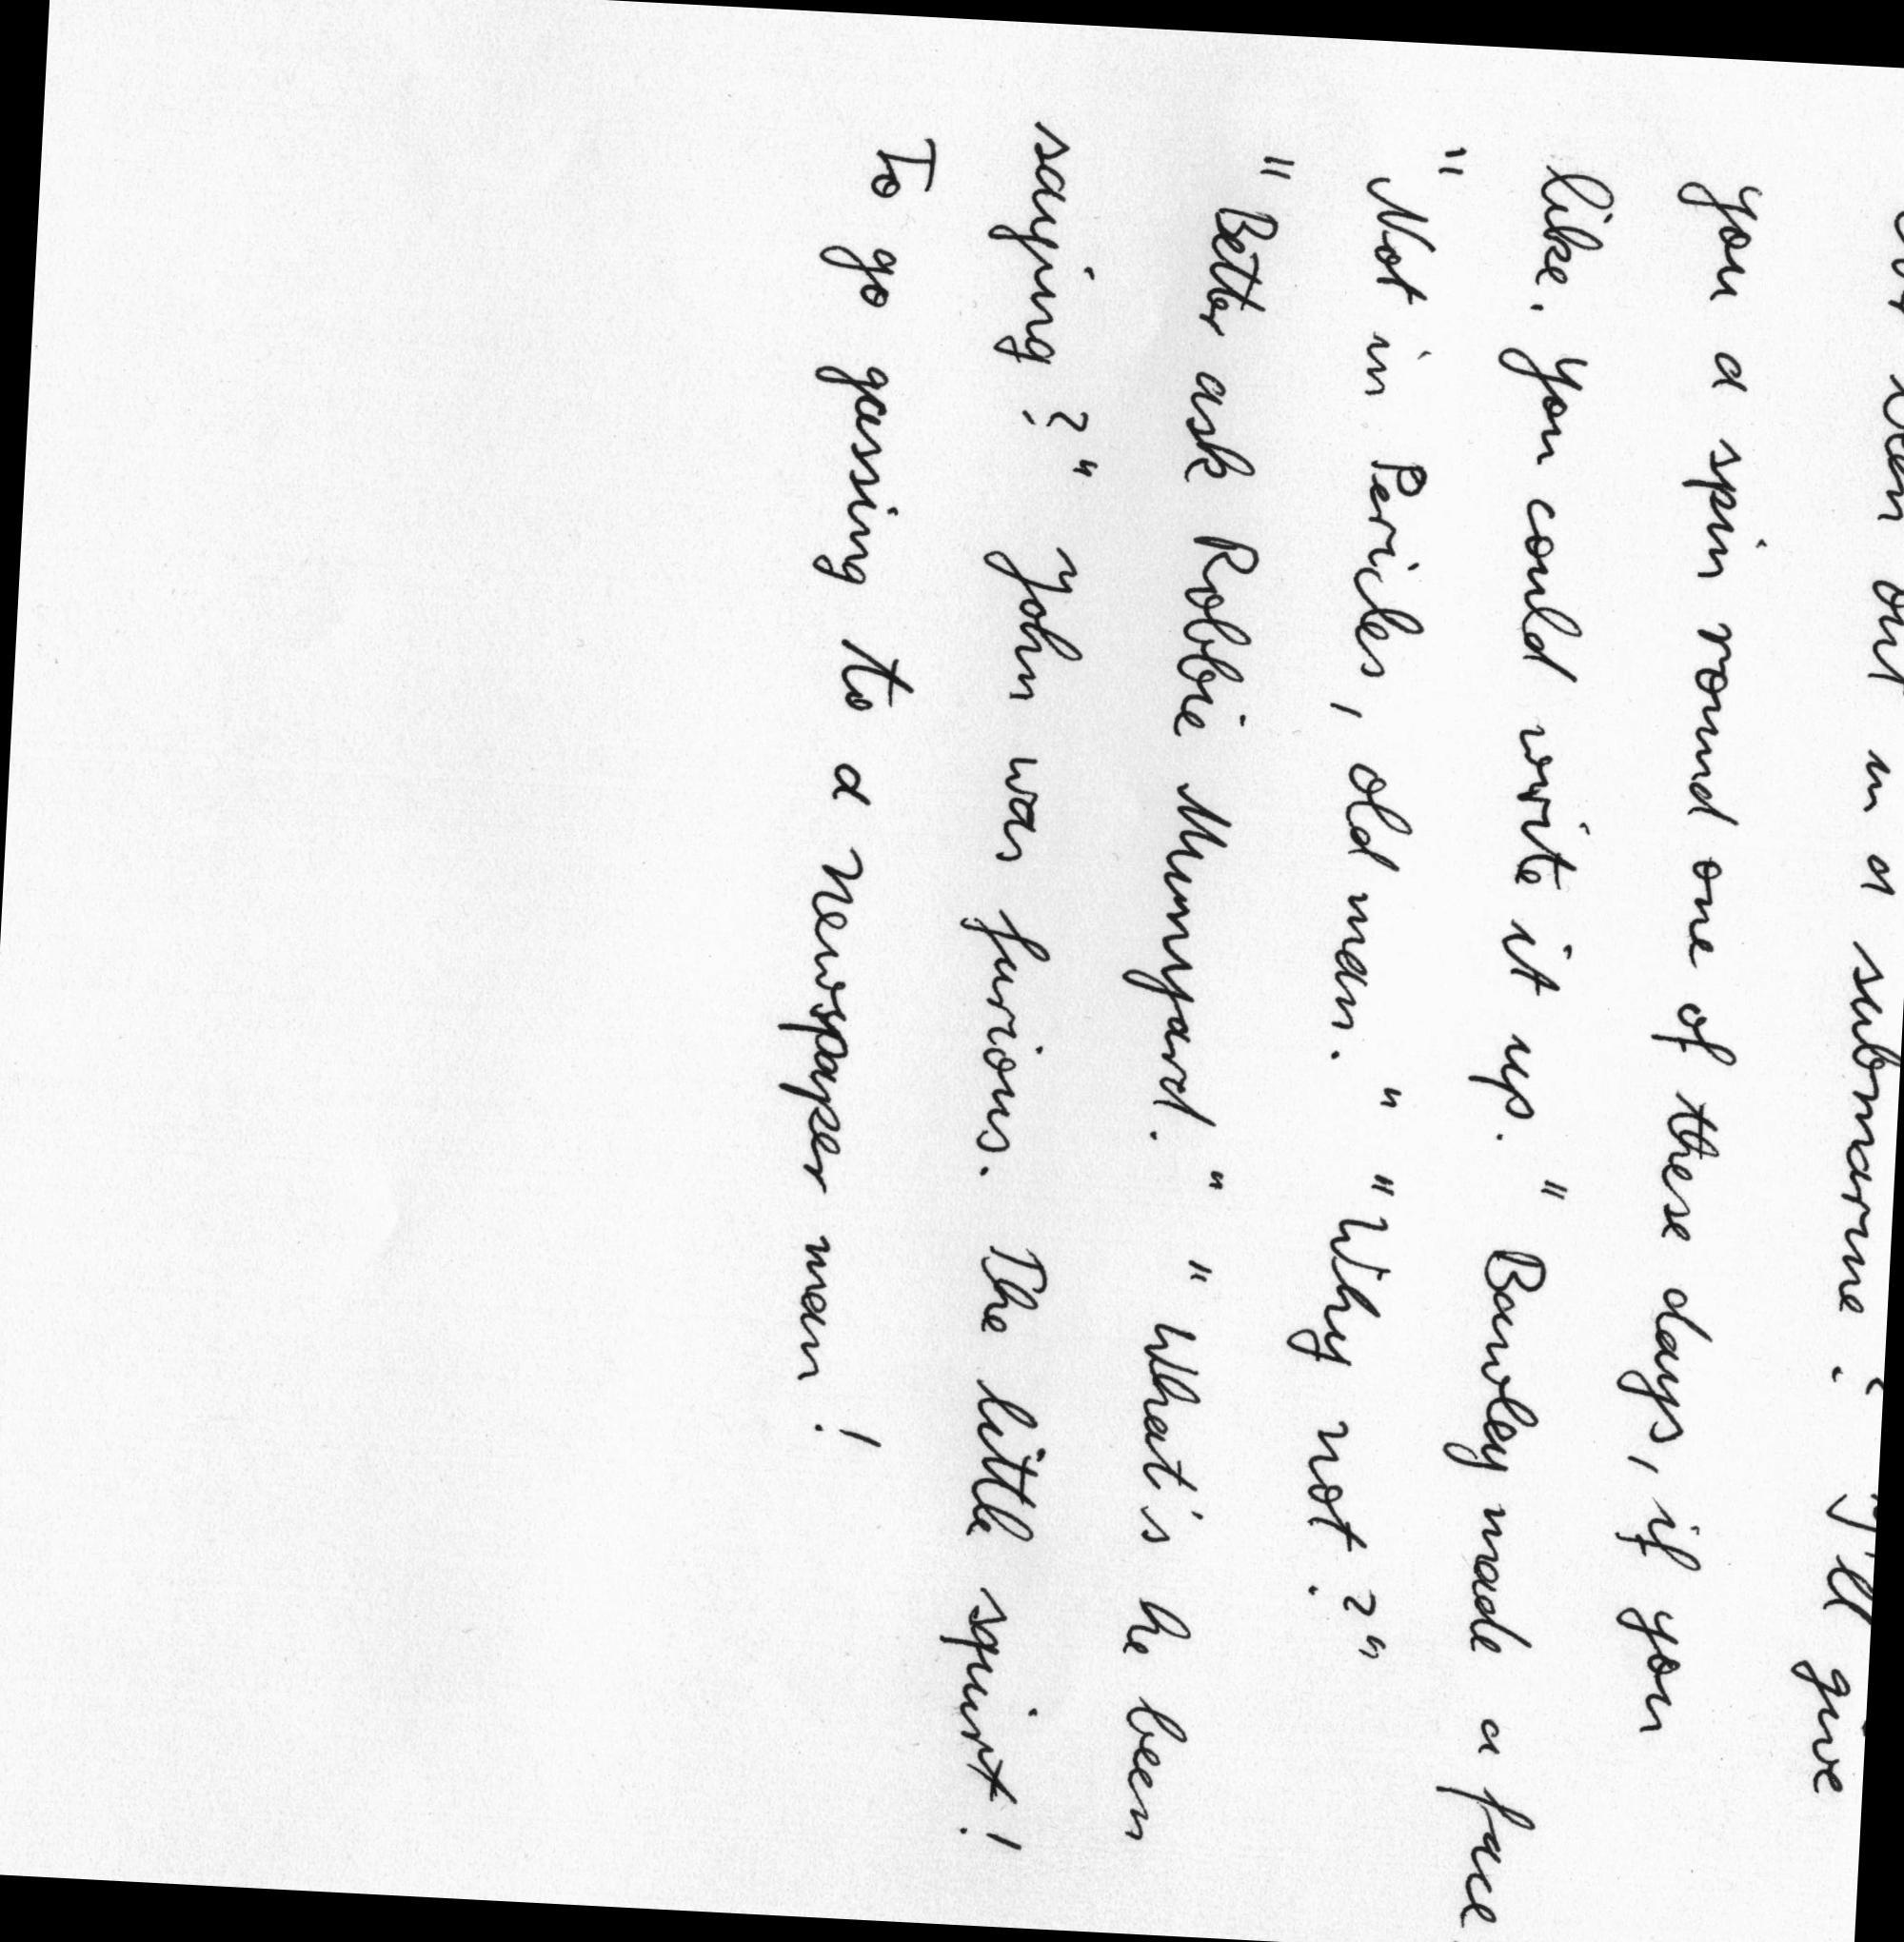 been out in a submarine? I'll give
you a spin round one of these days, if you
like. You could write it up." Bawley made a face
"Not in Pericles, old man." "Why not?"
"Better ask Robbie Munyard." "What's he been
saying?" John was furious. The little squirt!
To go gassing to a newspaper man!